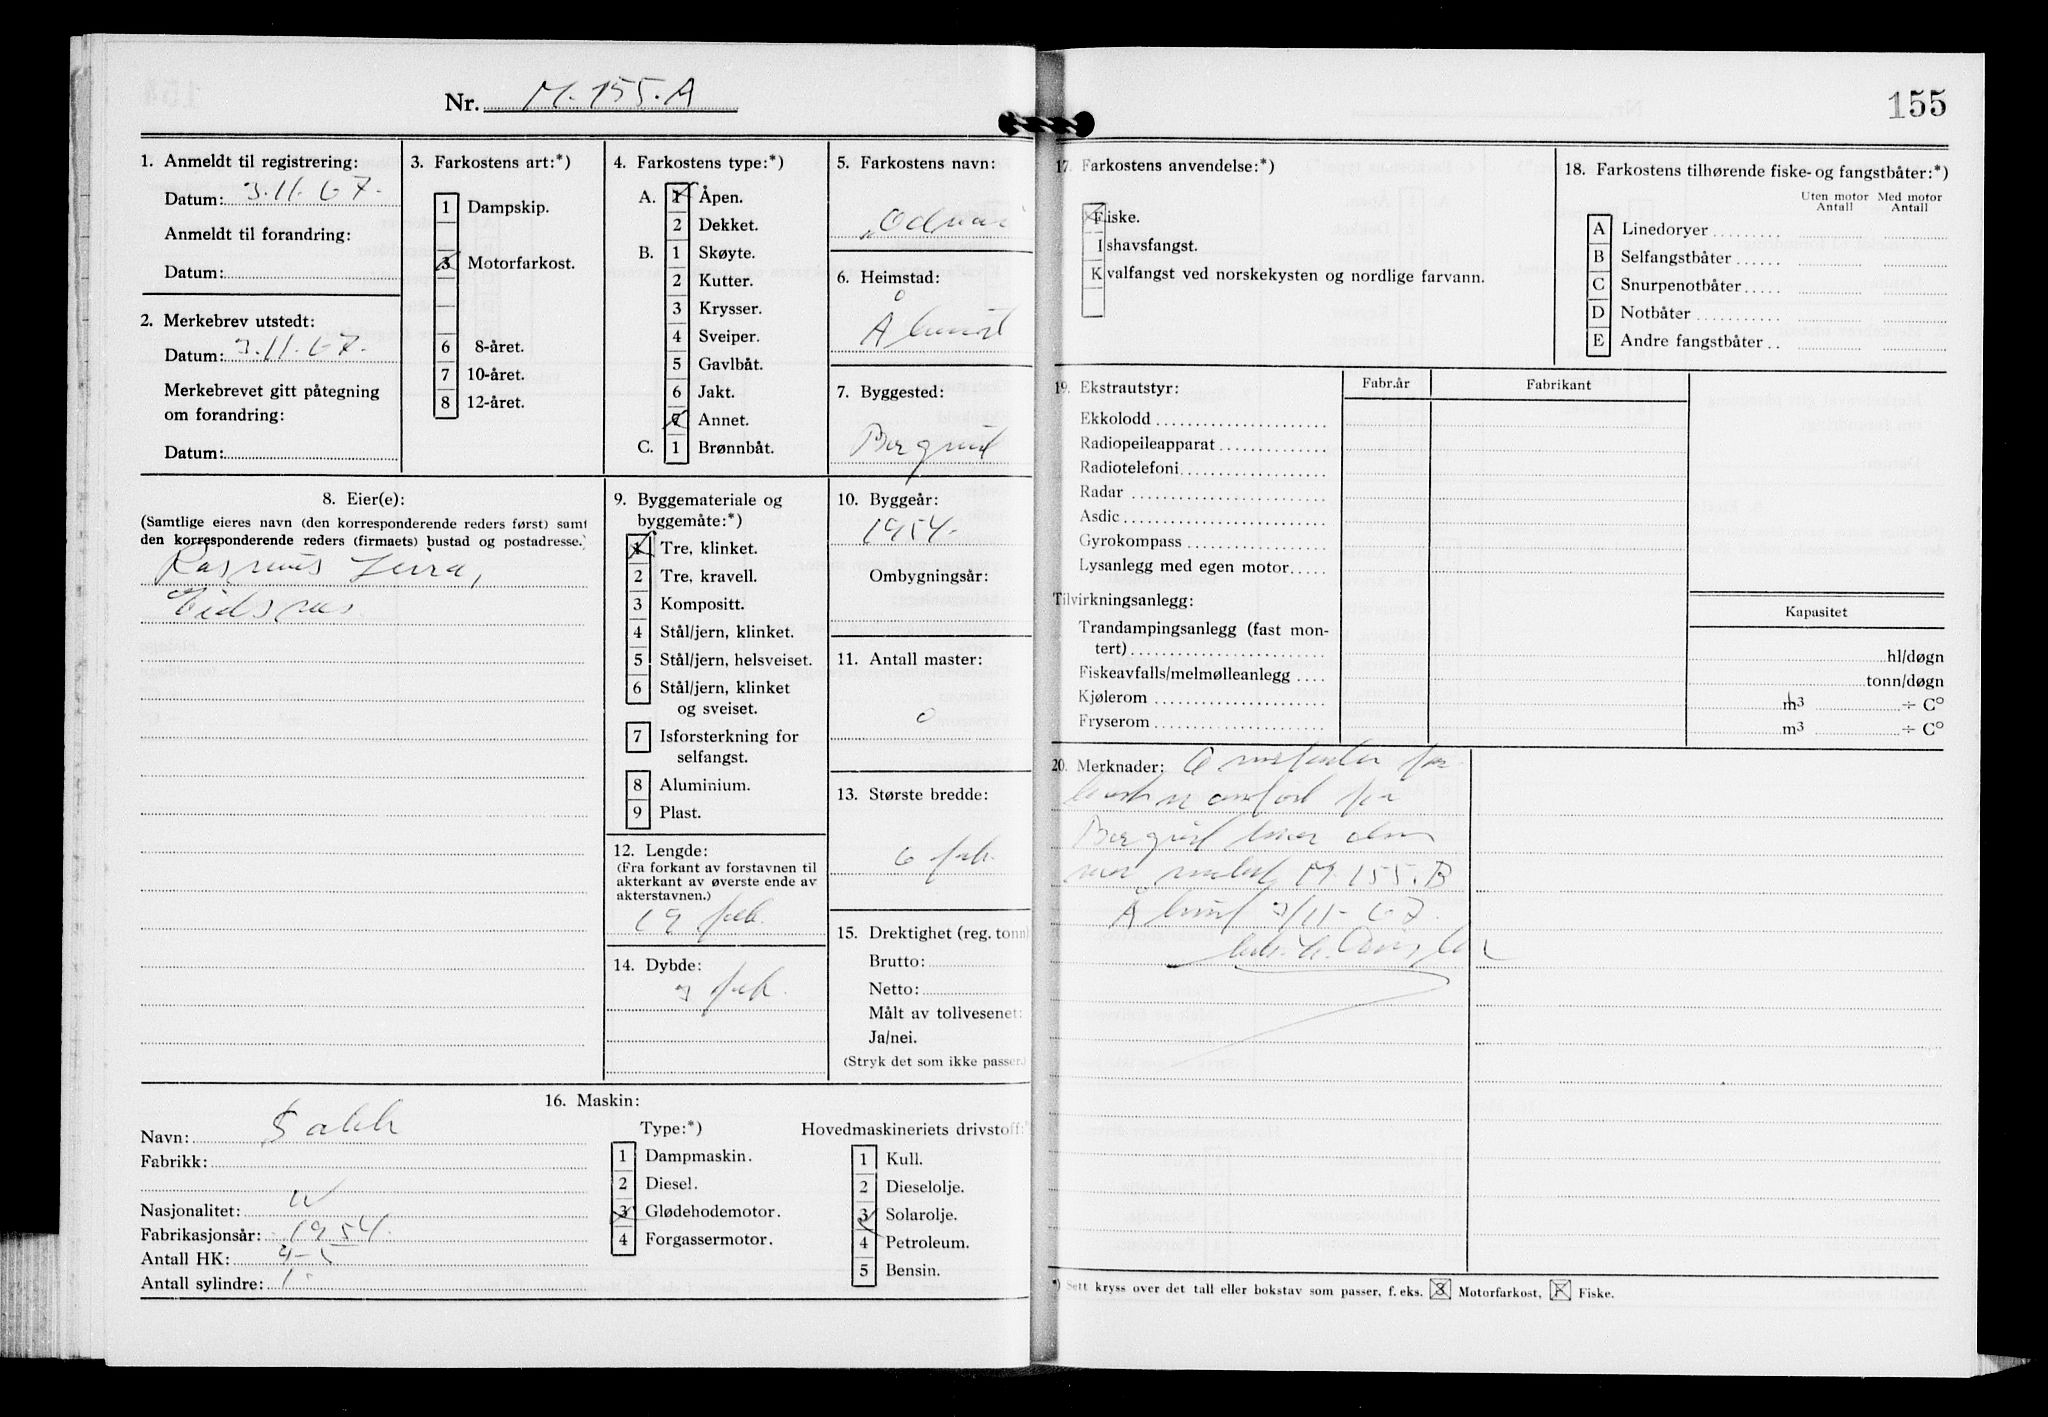 Nr. M. 155. A
1. Anmeldt til registrering:
Datum: 3.11.67.
Anmeldt til forandring:
Datum:
2. Merkebrev utstedt:
Datum: 3.11.67.
Merkebrevet gitt påtegning
om forandring:
Datum:
3. Farkostens art:*)
1 Dampskip.
3 Motorfarkost.
6 8-året.
7 10-året.
8 12-året.
4. Farkostens type:*)
A. 1 Åpen.
2 Dekket.
B. 1 Skøyte.
2 Kutter.
3 Krysser.
4 Sveiper.
5 Gavlbåt.
6 Jakt.
7 Annet.
C. 1 Brønnbåt.
5. Farkostens navn:
6. Heimstad:
7. Byggested:
8. Eier(e):
(Samtlige eieres navn (den korresponderende reders først) samt
den korresponderende reders (firmaets) bustad og postadresse.)
Rasmus
Eidsnes.
9. Byggemateriale og
byggemåte:*)
1 Tre, klinket.
2 Tre, kravell.
3 Kompositt.
4 Stål/jern, klinket.
5 Stål/jern, helsveiset.
6 Stål/jern, klinket
og sveiset.
7 Isforsterkning for
selfangst.
8 Aluminium.
9 Plast.
10. Byggeår:
1954.
Ombygningsår:
11. Antall master:
0
12. Lengde:
(Fra forkant av forstavnen til
akterkant av øverste ende av
akterstavnen.)
19 fot.
13. Største bredde:
6 fot.
14. Dybde:
3 fot.
15. Drektighet (reg. tonn)
Brutto:
Netto:
Målt av tollvesenet:
Ja/nei.
(Stryk det som ikke passer.)
16. Maskin:
Navn: Sabb
Fabrikk:
Nasjonalitet: N
Fabrikasjonsår: 1954.
Antall HK:
Antall sylindre: 1.
Type:*)
1 Dampmaskin.
2 Diesel.
3 Glødehodemotor.
4 Forgassermotor.
Hovedmaskineriets drivstoff:
1 Kull.
2 Dieselolje.
3 Solarolje.
4 Petroleum.
5 Bensin.
155
17. Farkostens anvendelse:*)
Fiske.
Ishavsfangst.
Kvalfangst ved norskekysten og nordlige farvann.
18. Farkostens tilhørende fiske- og fangstbåter:*)
Uten motor Med motor
Antall Antall
A Linedoryer
B Selfangstbåter
C Snurpenotbåter
D Notbåter
E Andre fangstbåter
19. Ekstrautstyr:
Fabr.år
Fabrikant
Ekkolodd
Radiopeileapparat
Radiotelefoni
Radar
Asdic
Gyrokompass
Lysanlegg med egen motor
Tilvirkningsanlegg:
Kapasitet
Trandampingsanlegg (fast mon-
tert) hl/døgn
Fiskeavfalls/melmølleanlegg tonn/døgn
Kjølerom m3 ÷ C°
Fryserom m3 ÷ C°
20. Merknader:
M. 155. B
3/11-67.
*) Sett kryss over det tall eller bokstav som passer, f. eks. 3 Motorfarkost, F Fiske.